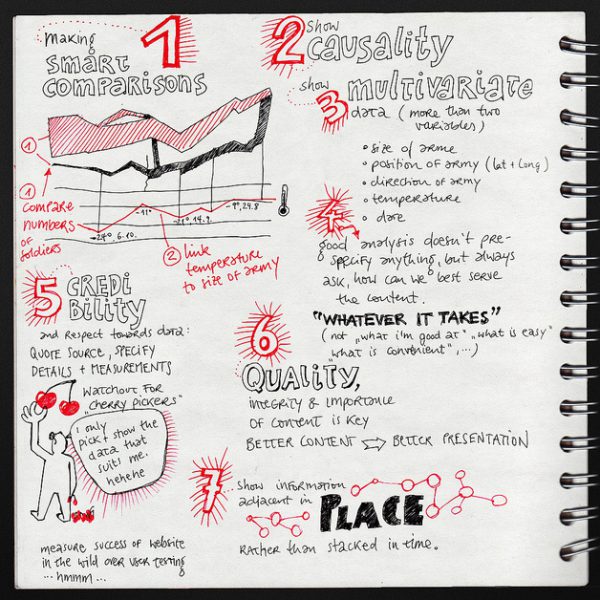 making
1
smart
comparisons
1
1
compare
numbers
of
soldiers
-27°, 6.10.
-11°
-21°, 14.9.
-9°, 24.8
2 link
temperature
to size of army
2 show
causality
show
3 multivariate
data (more than two
variables)
• size of arme
• position of army (lat + long)
• direction of army
• temperature
• date
4
good analysis doesn't pre-
specify anything, but always
ask, how can we best serve
the content.
"WHATEVER IT TAKES"
(not „what i'm good at" „what is easy"
„what is convenient",...)
5 CREDI
BILITY
and respect towards data:
QUOTE SOURCE, SPECIFY
DETAILS + MEASUREMENTS
WATCHOUT FOR
„CHERRY PICKERS"
i only
pick + show the
data that
suits me.
hehehe
measure success of website
in the wild over user testing
... hmmm ...
6
QUALITY,
INTEGRITY & IMPORTANCE
OF CONTENT IS KEY
BETTER CONTENT ⇨ BETTER PRESENTATION
7 show information
adjacent in PLACE
RATHER than stacked in time.